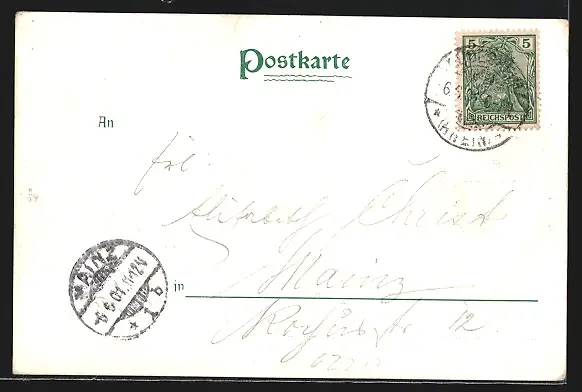 Postkarte
5 5
REICHSPOST
6.
(RHEIN)
An
Frl.
Elisabeth Christ
MAINZ
6 6 01. 11-12 V
* 1 b
in Mainz
Rochusstr 12.